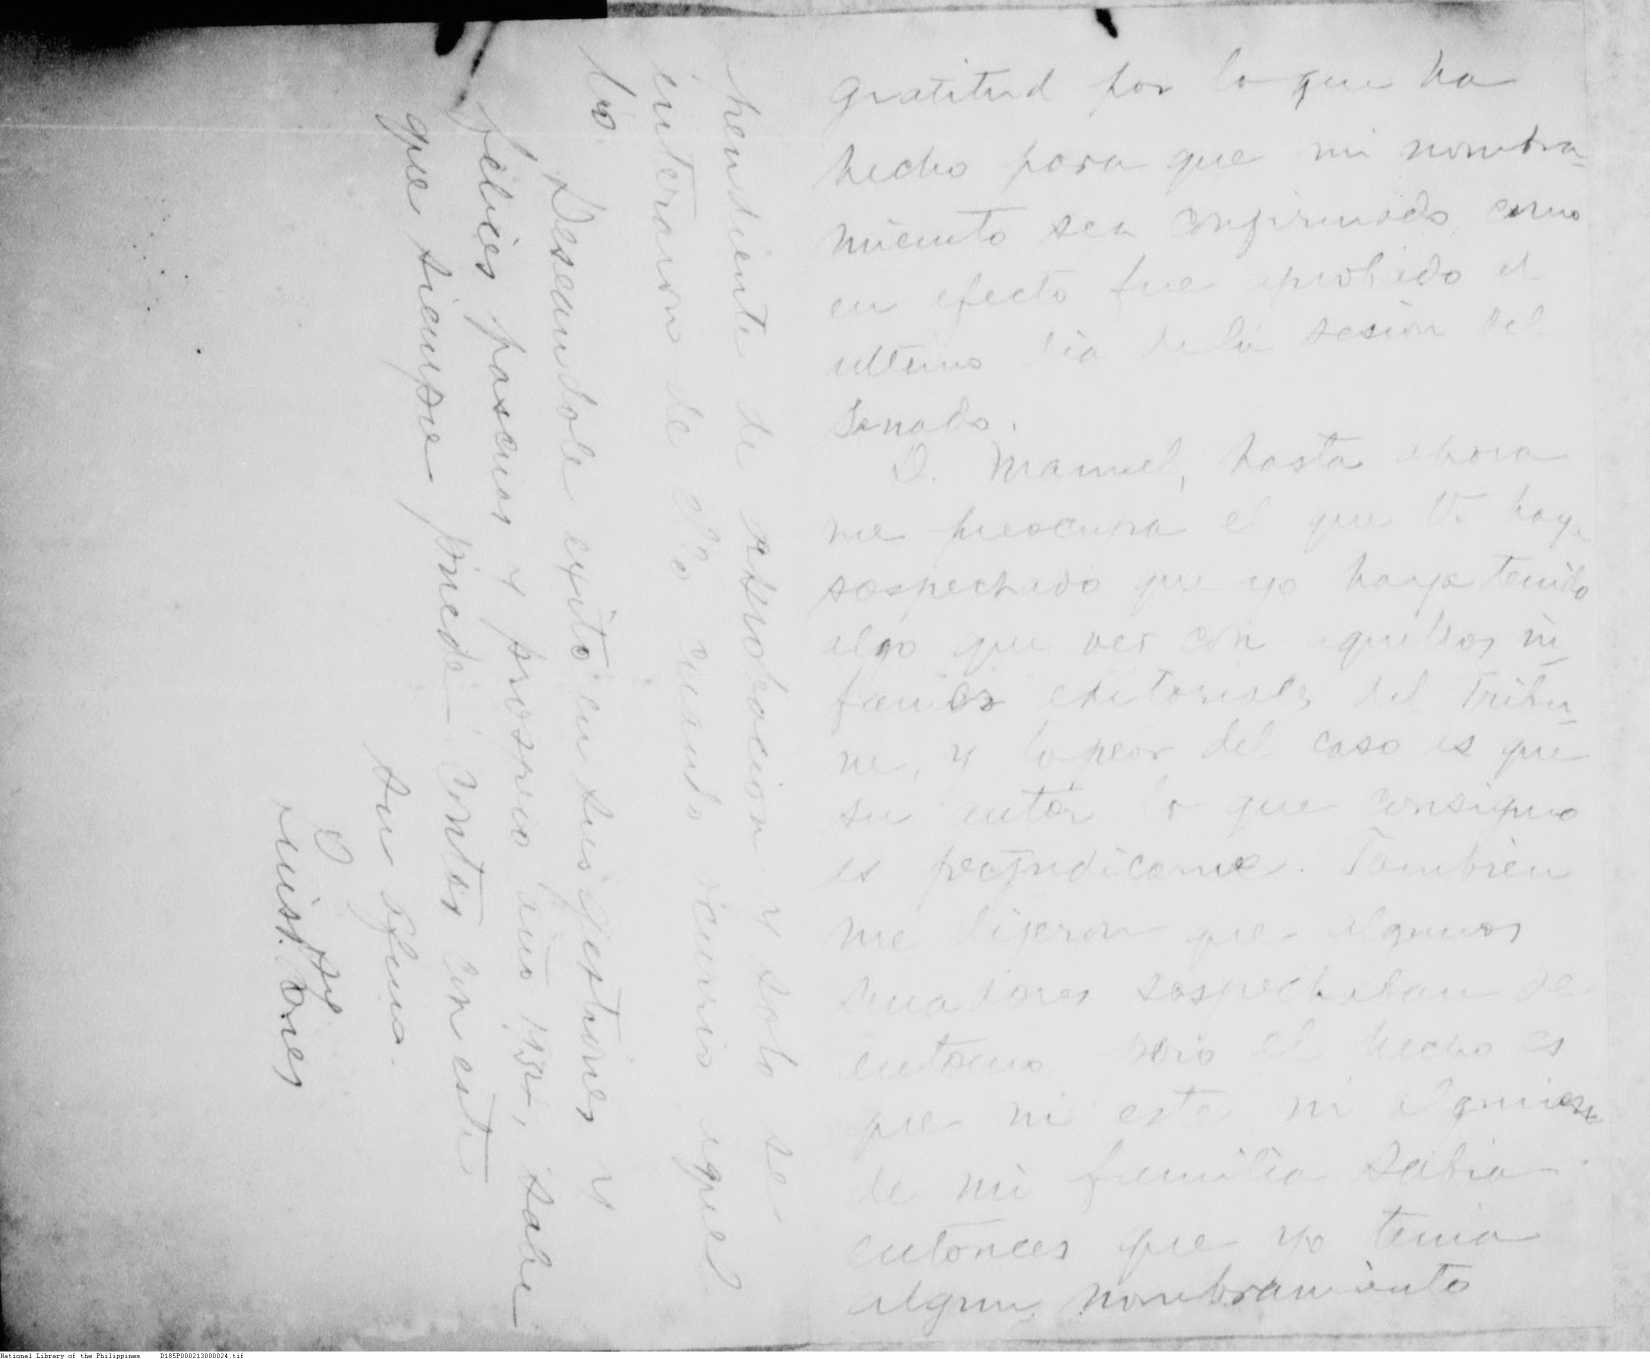 gratitud por lo que ha
hecho para que mi nombra-
miento sea confirmado, como
en efecto fue aprobado el
ultimo dia de la sesion del
Senado.
D. Manuel, hasta ahora
me preocupa el que V. haya
sospechado que yo haya tenido
algo que ver con aquellos in-
fames editoriales del Tribu-
ne, y lo peor del caso es que
su autor lo que consiguio
es perjudicarme. Tambien
me dijeron que algunos
senadores sospechaban de
pero el hecho es
que ni este ni alguien
de mi familia sabia
entonces que yo tenia
algun nombramiento
pendiente de aprobacion y solo se
enteraron de ello cuando ocurrio aquel
lio.
Deseandole exito en sus gestiones y
felices pascuas y prospero año, sabe
que siempre puede contar con este
su afmo.
Luis P. Torres
National Library of the Philippines D185P000213000024.tif